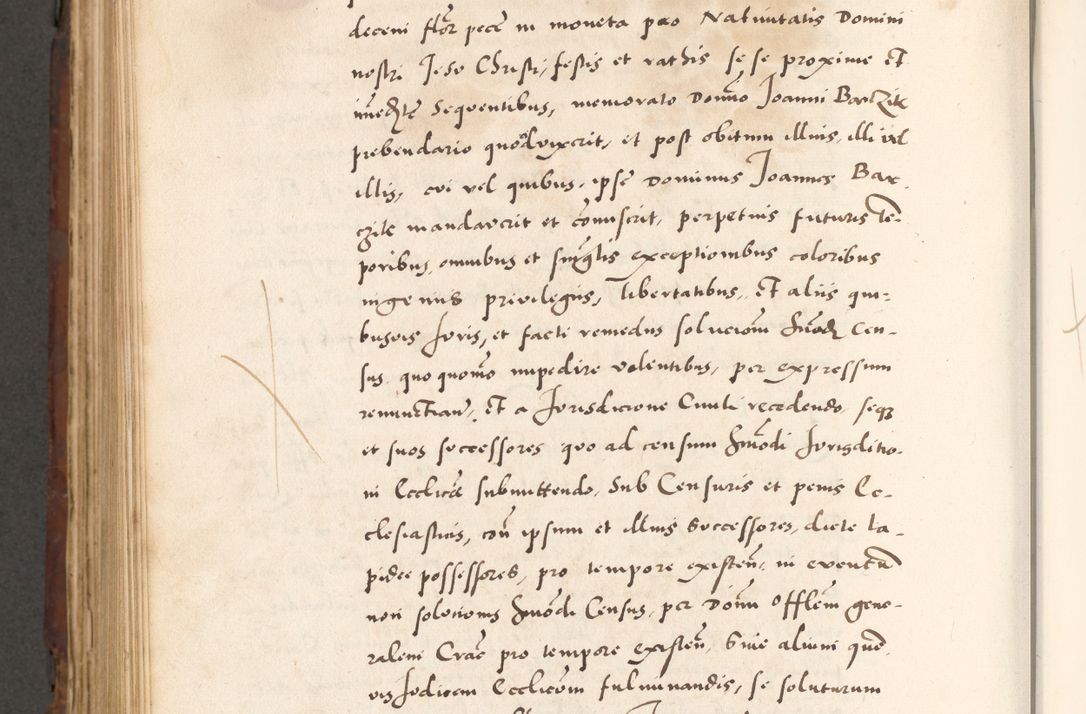 deceni flor pecē in moneta pro Natiuitatis Domini
nostri Jesv Christi, festis et rathis se se proxime et
īmedte Sequentibus, memorato Domīo Joanni Barzik
prebendario quoad vixerit, et post obitum illius, illi vel
illis, cvi vel quibus, ipse Dominus Joannes Bar
czik mandaverit et comiserit, perpetuis futuris te-
poribus, omnibus et singlis exceptionibus coloribus
ingeniis privilegiis, libertatibus, et aliis qui-
busvis Jvris, et facti remediis solucionī hmōdi Cen-
sus, quoquomō impedire valentibus, per expressum
renunctian, et a Jvrisdicione Ciuili recedendo, seqz
et suos svccessores quo ad censum hmōdi Jvrisditio-
ni Ecclicē submittendo, Sub Censuris et penis Ec-
clesiasticis, con̄ ipsum et illius Successores, dicte la-
pidee possessores, pro tempore existen̄, in eventū
non solvcionis hmōdi Census, per Domī Offlem gene-
ralem Crac̄ pro tempore existen̄, Siue alium quē
vis Jvdicem Ecclicvm fulminandis, se soluturum